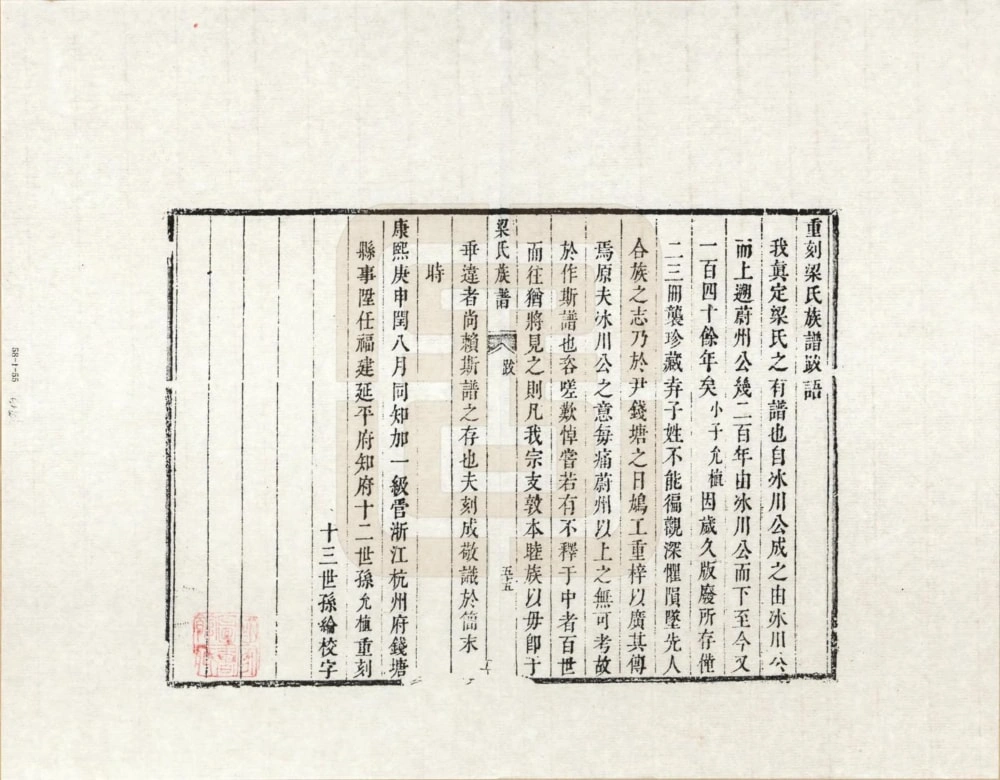 重刻梁氏族譜跋語
我真定梁氏之有譜也自冰川公成之由冰川公
而上遡蔚州公幾二百年由冰川公而下至今又
一百四十餘年矣小子允植因歲久版廢所存僅
二三冊襲珍藏弆子姓不能徧觀深懼隕墜先人
合族之志乃於尹錢塘之日鳩工重梓以廣其傳
焉原夫冰川公之意每痛蔚州以上之無可考故
於作斯譜也咨嗟歎悼嘗若有不釋于中者百世
而往猶將見之則凡我宗支敦本睦族以毋卽于
梁氏族譜 跋 五十五
乖違者尚賴斯譜之存也夫刻成敬識於簡末
時
康熙庚申閏八月同知加一級管浙江杭州府錢塘
縣事陞任福建延平府知府十二世孫允植重刻
十三世孫綸校字